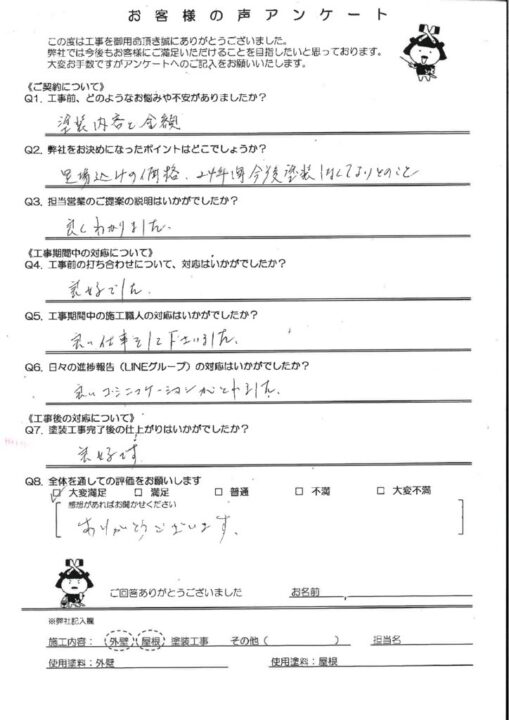 お客様の声アンケート
この度は工事を御用命頂き誠にありがとうございました。
弊社では今後もお客様にご満足いただけることを目指したいと思っております。
大変お手数ですがアンケートへのご記入をお願いいたします。
《ご契約について》
Q1. 工事前、どのようなお悩みや不安がありましたか?
塗装内容と金額
Q2. 弊社をお決めになったポイントはどこでしょうか?
足場込みの価格、24年間今後塗装しなくてよいとのこと
Q3. 担当営業のご提案の説明はいかがでしたか?
良くわかりました.
《工事期間中の対応について》
Q4. 工事前の打ち合わせについて、対応はいかがでしたか?
良好でした.
Q5. 工事期間中の施工職人の対応はいかがでしたか?
良い仕事をして下さいました.
Q6. 日々の進捗報告(LINEグループ)の対応はいかがでしたか?
良いコミニケーションがとれました.
《工事後の対応について》
Q7. 塗装工事完了後の仕上がりはいかがでしたか?
良好です.
Q8. 全体を通しての評価をお願いします
☑ 大変満足 □ 満足 □ 普通 □ 不満 □ 大変不満
感想があればお聞かせください
ありがとうございます.
ご回答ありがとうございました お名前
※弊社記入欄
施工内容: 外壁 屋根 塗装工事 その他( ) 担当名
使用塗料:外壁 使用塗料:屋根